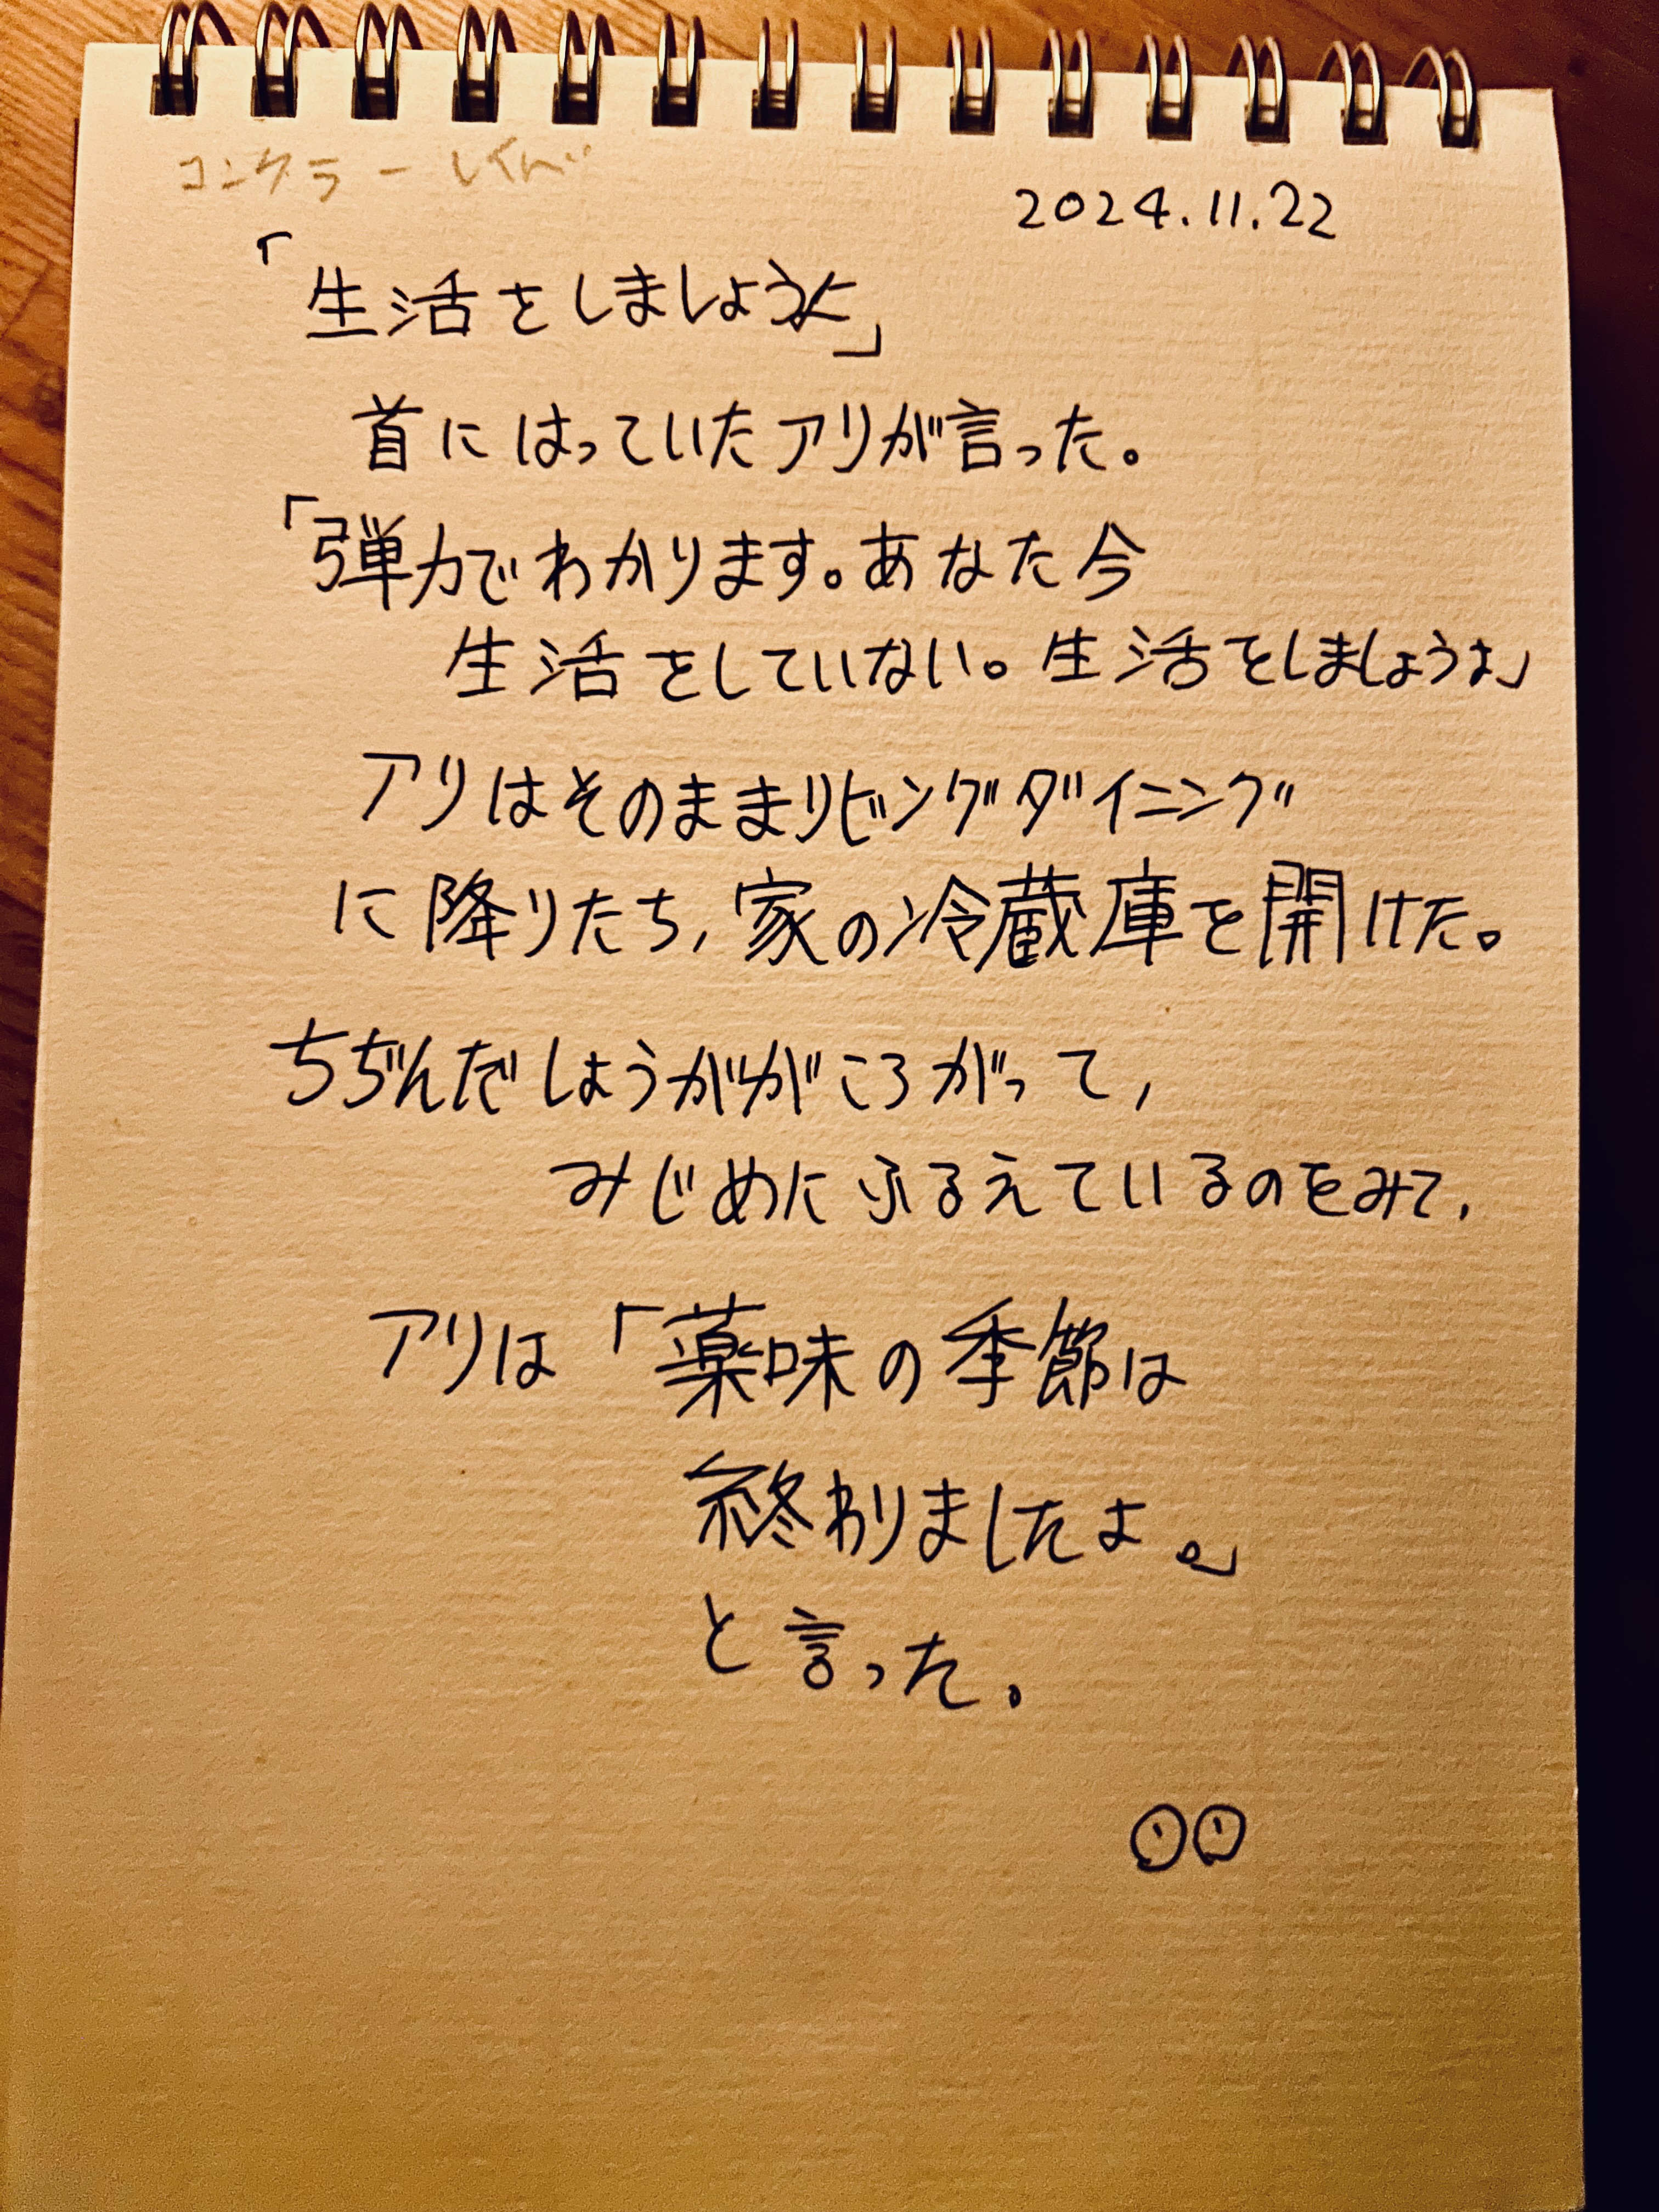 2024.11.22
「生活をしましょうよ」
首にはっていたアリが言った。
「弾力でわかります。あなた今
生活をしていない。生活をしましょうよ」
アリはそのままリビングダイニング
に降りたち,家の冷蔵庫を開けた。
ちぢんだしょうががころがって,
みじめにふるえているのをみて,
アリは「薬味の季節は
終わりましたよ。」
と言った。